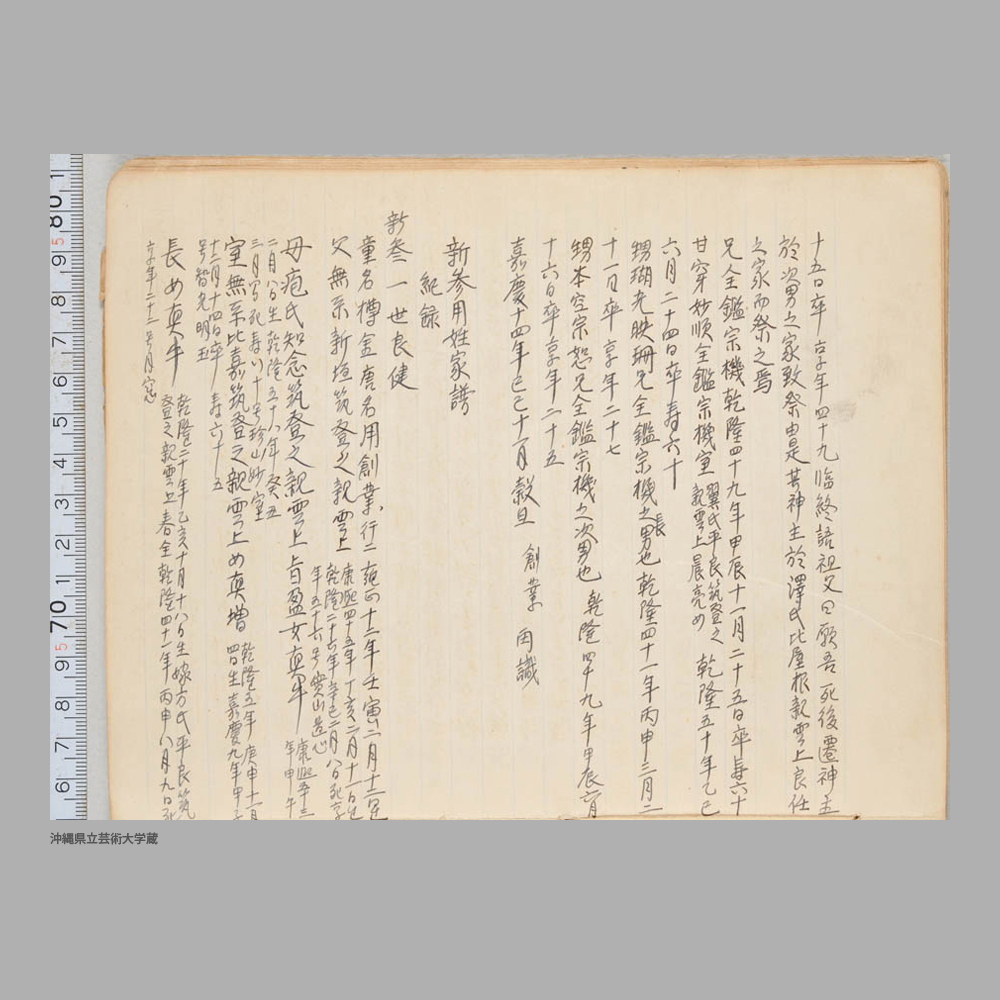 十五日卒 享年四十九臨終語祖父曰願吾死後遷神主
於次男之家致祭由是其神主於澤氏比屋根親雲上良任
之家而祭之焉
兄全鑑宗機乾隆四十九年甲辰十一月二十五日卒寿六十
甘穿妙順全鑑宗機室 翼氏平良筑登之親雲上長亮め 乾隆五十年乙巳
六月二十四日卒寿六十
甥瑚光映珊兄全鑑宗機之長男也 乾隆四十一年丙申三月二
十一日卒 享年二十七
甥本空宗恕兄全鑑宗機之次男也 乾隆四十九年甲辰六月
十六日卒 享年二十五
嘉慶十四年己巳十一月穀旦 創業 再識
新参用姓家譜
紀録
新参一世良健
童名樽金唐名用創業行二 雍正十二年壬寅二月十二日
父無系新垣筑登之親雲上 康熙四十五年丁亥二月十一日生
乾隆二十六年辛巳二月八日死享
年五十六号實山道心
母庖氏知念筑登之親雲上 盈女真牛 康熙
年甲午
二月八日生乾隆五十八年癸丑
三月 死寿八十号珍山妙室
室無系比嘉筑登之親雲上め真増 乾隆五年庚申十一月
四日生嘉慶九年甲子
十二月十四日卒 寿六十五
号智光明玉
長め真牛 乾隆二十年乙亥十月十八日生嫁方氏平良筑
登之親雲上春全乾隆四十一年丙申八月九日死
享年二十二号月窓
沖縄県立芸術大学蔵